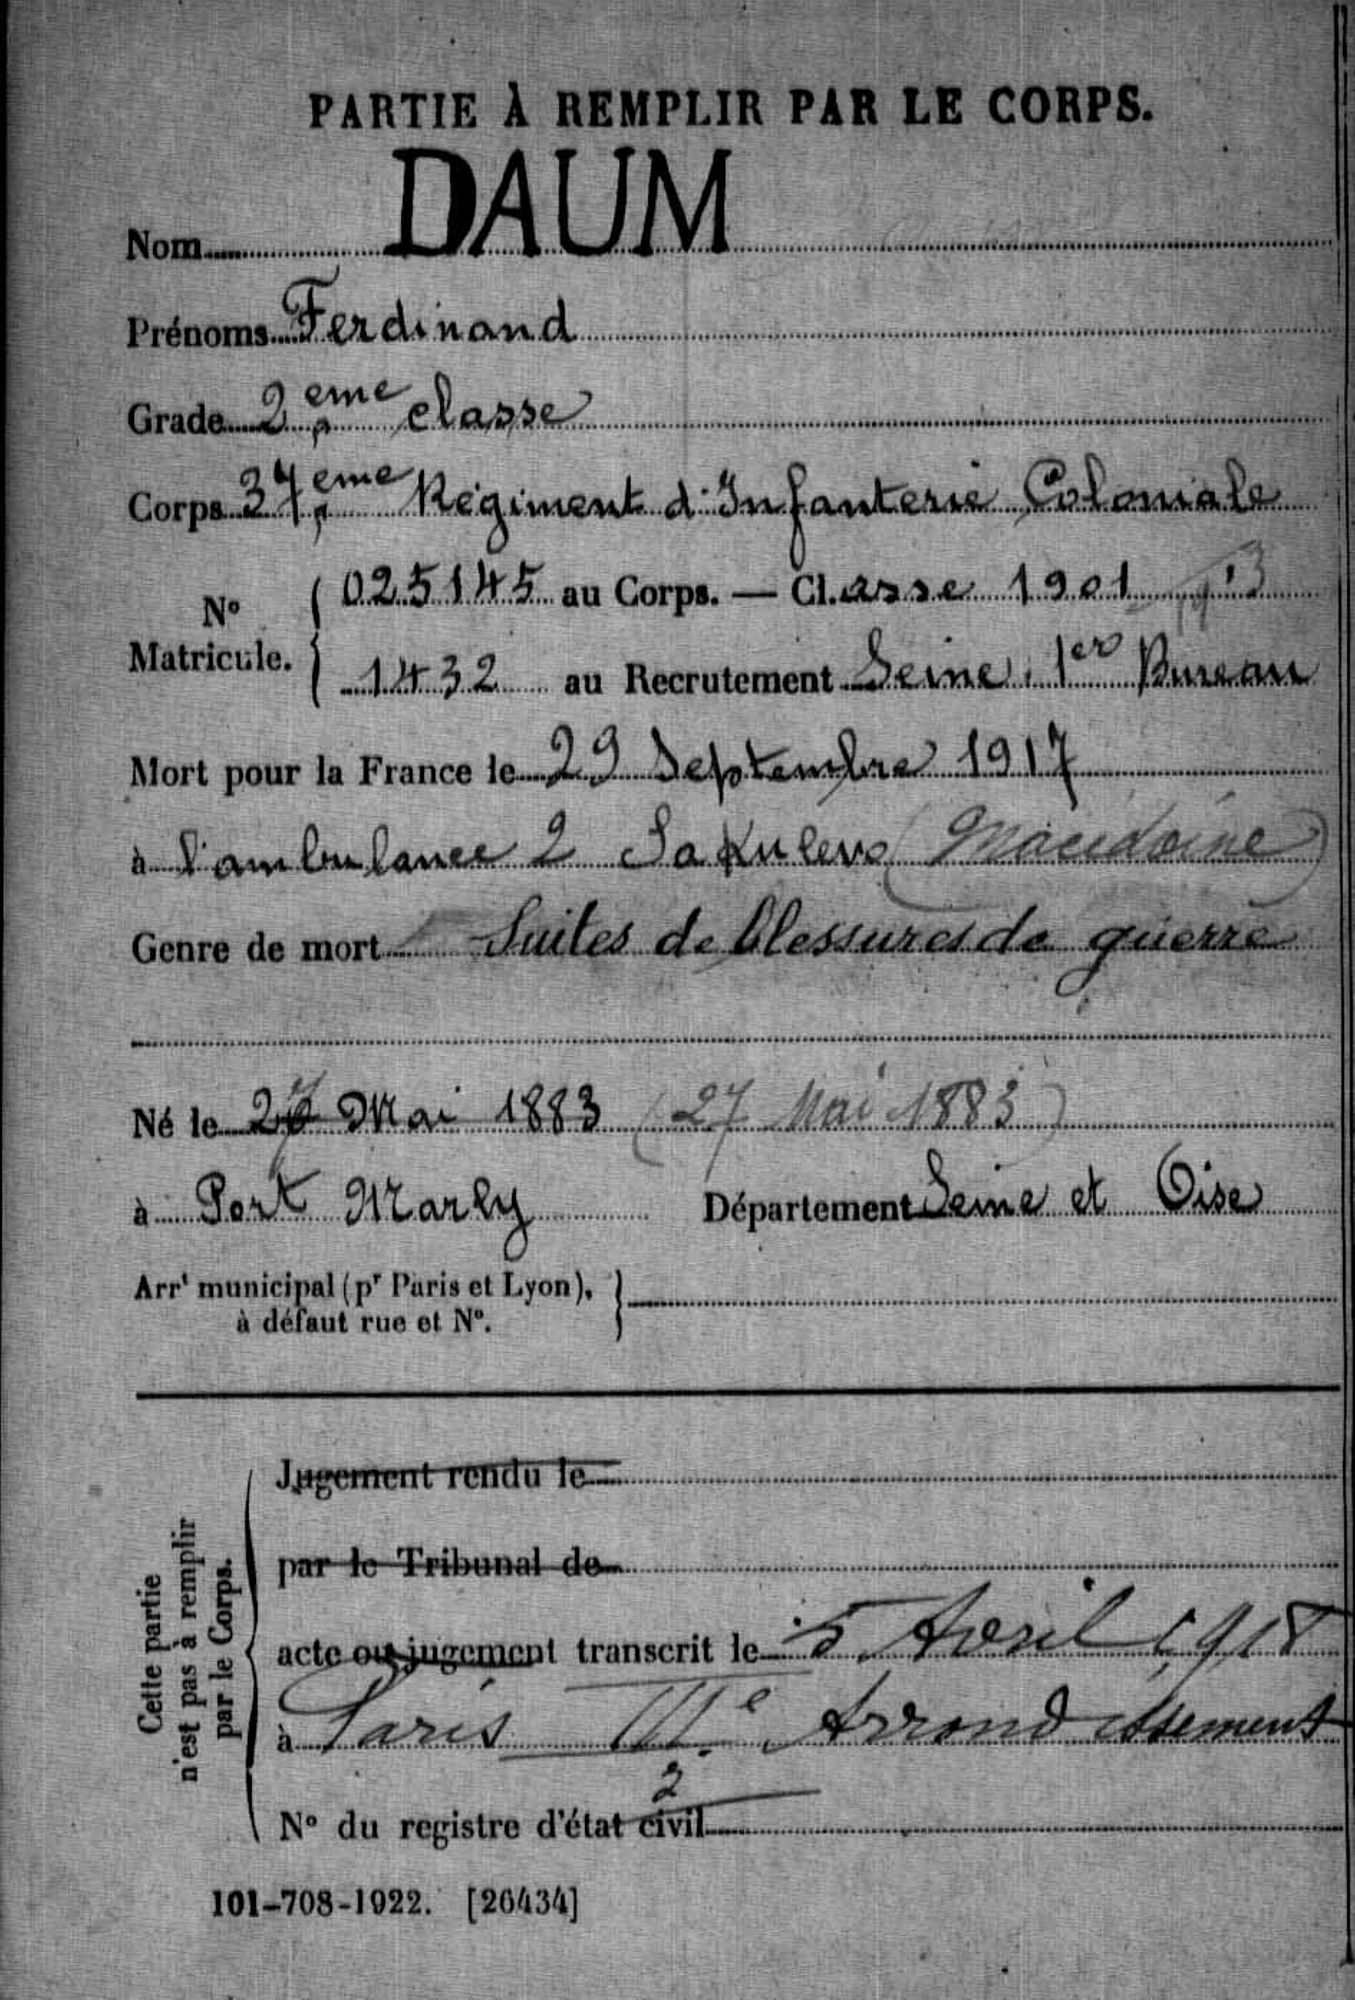 PARTIE À REMPLIR PAR LE CORPS.
Nom DAUM
Prénoms Ferdinand
Grade 2ème classe
Corps 37ème Régiment d'Infanterie Coloniale
N° Matricule. { 025145 au Corps. — Cl.asse 1901
1432 au Recrutement Seine 1er Bureau
Mort pour la France le 29 Septembre 1917
à l'ambulance 2 Sakulevo (Macédoine)
Genre de mort Suites de blessures de guerre
Né le 27 Mai 1883 (27 Mai 1883)
à Port Marly Département Seine et Oise
Arrt municipal (pr Paris et Lyon),
à défaut rue et N°.
Cette partie
n'est pas à remplir
par le Corps.
Jugement rendu le
par le Tribunal de
acte ou jugement transcrit le 5 Avril 1918
à Paris Arrondissement
2
N° du registre d'état civil
101-708-1922. [26434]